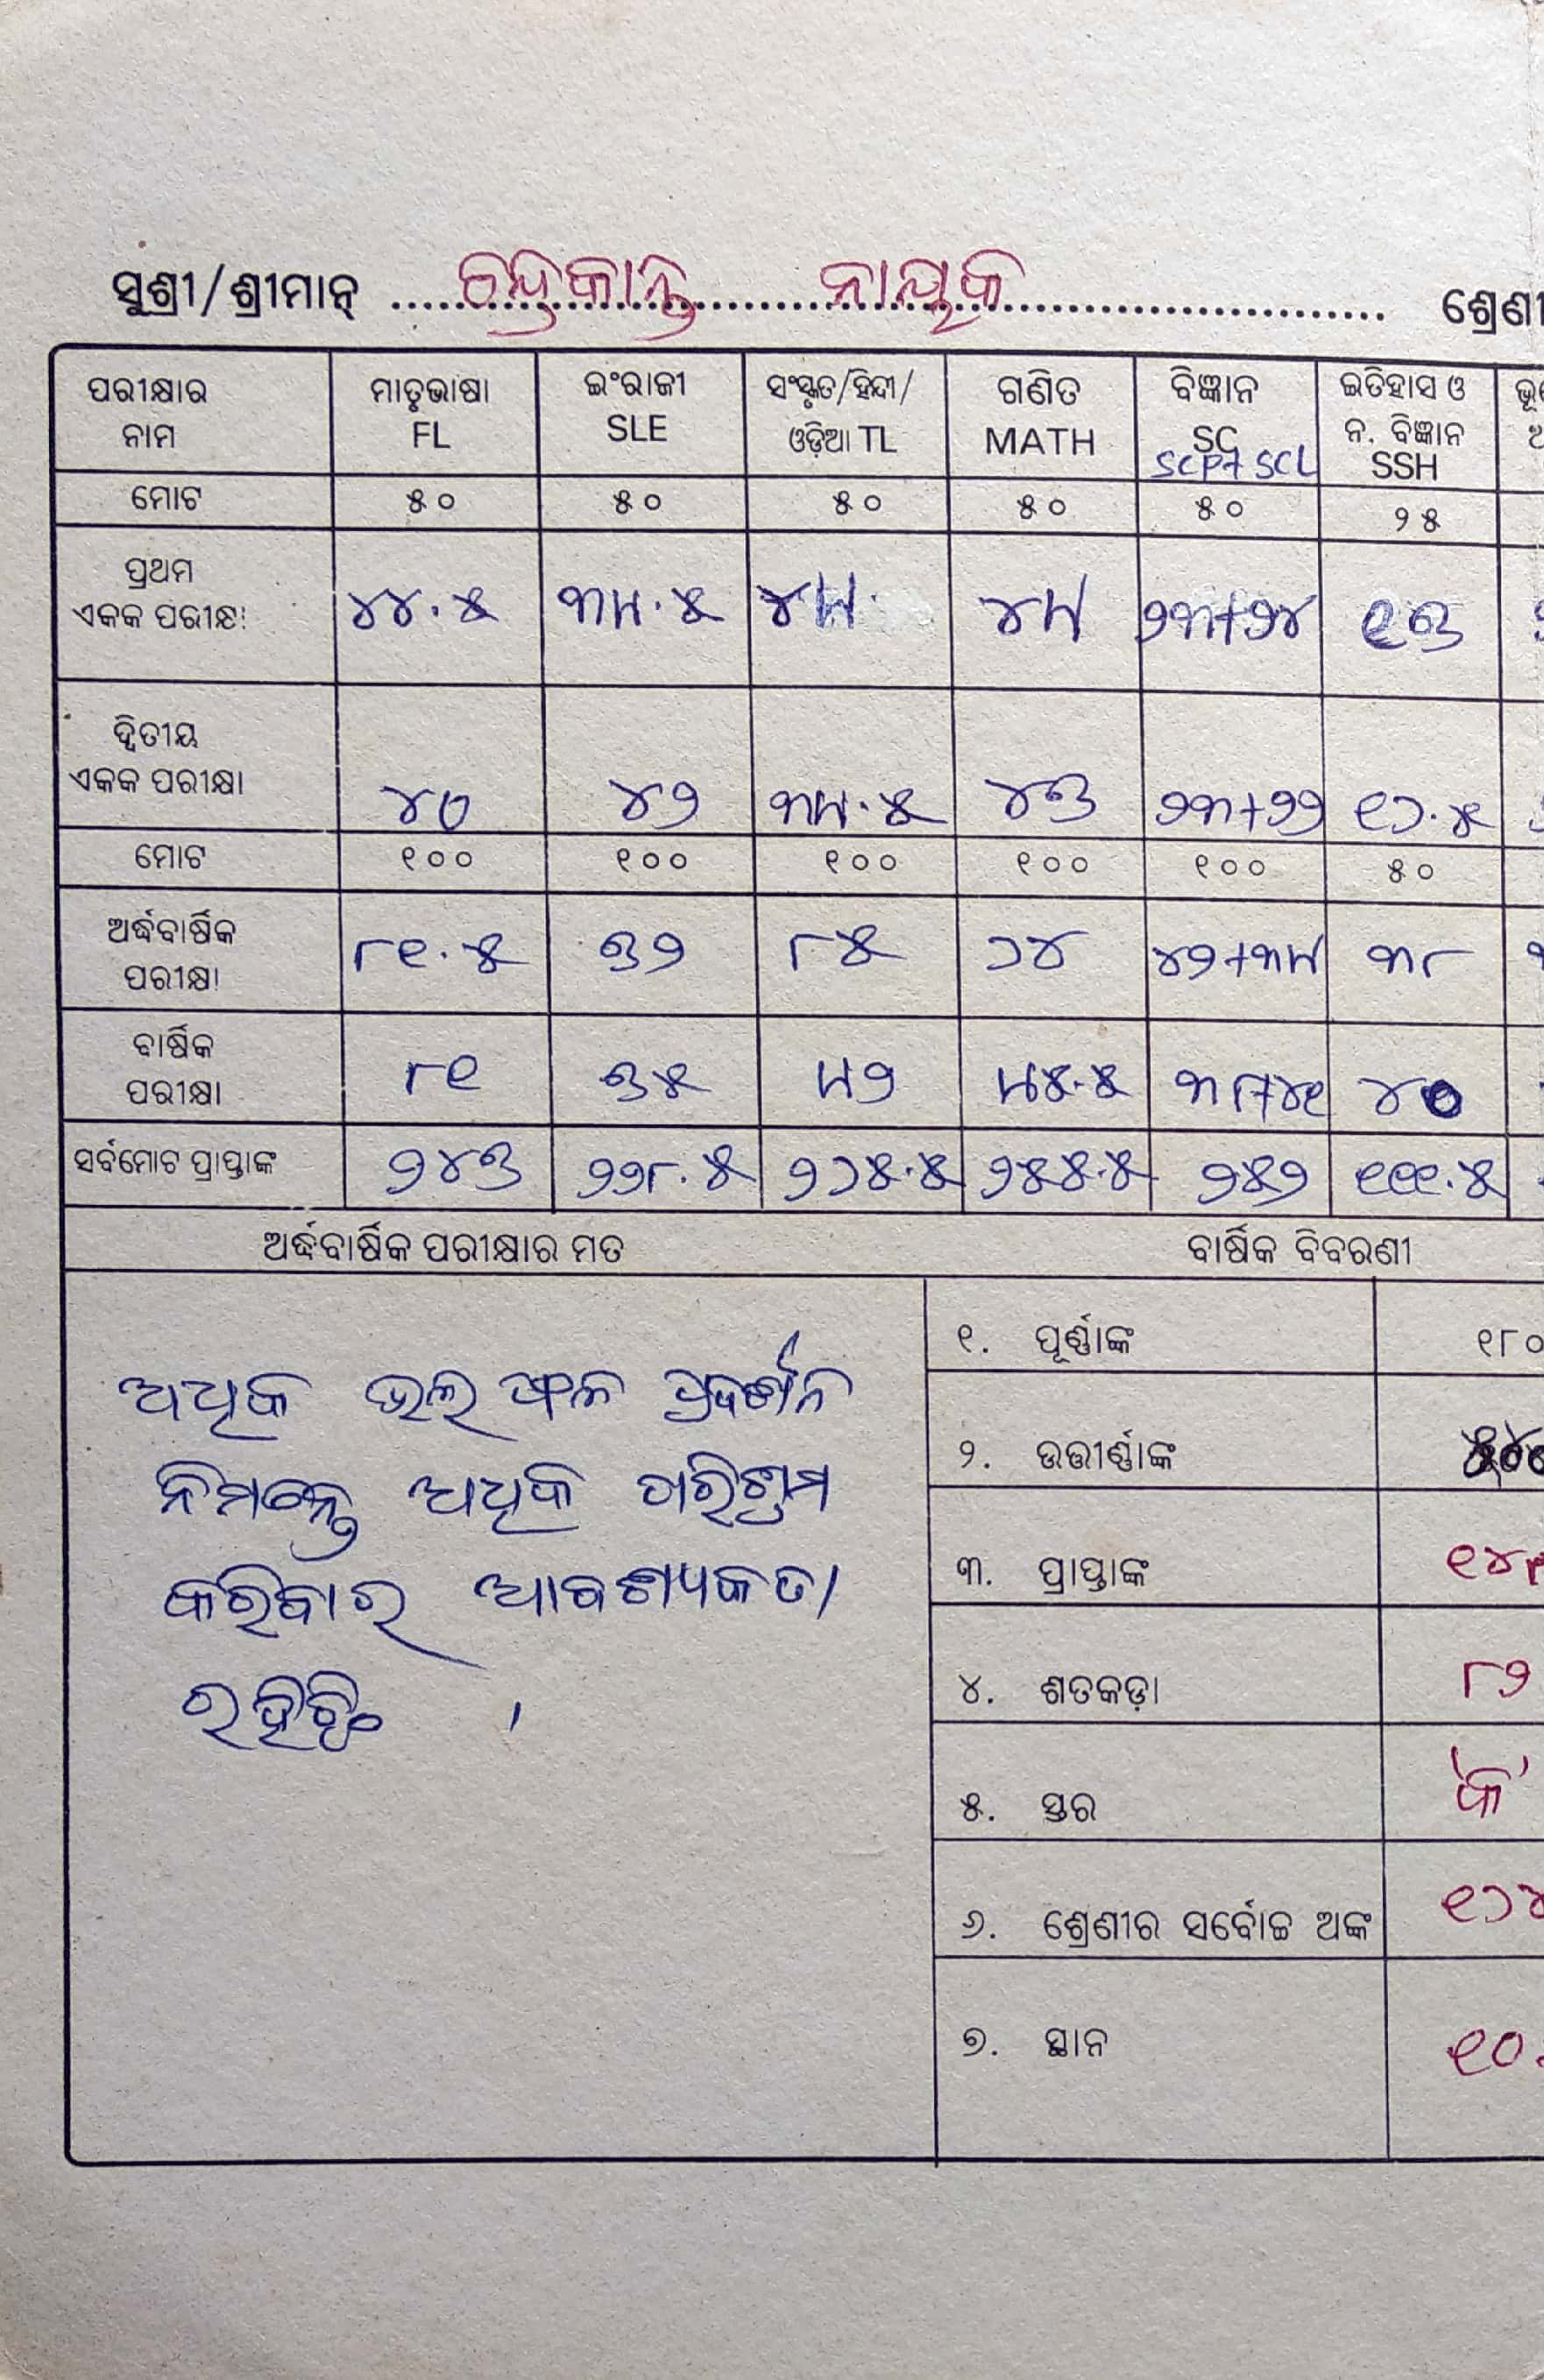 ସୁଶ୍ରୀ/ଶ୍ରୀମାନ୍ ........ ଚନ୍ଦ୍ରକାନ୍ତ ନାୟକ ........ ଶ୍ରେଣୀ
ପରୀକ୍ଷାର ମାତୃଭାଷା ଇଂରାଜୀ ସଂସ୍କୃତ/ହିନ୍ଦୀ/ ଗଣିତ ବିଜ୍ଞାନ ଇତିହାସ ଓ
ନାମ FL SLE ଓଡ଼ିଆ TL MATH SC ନ. ବିଜ୍ଞାନ
SCP+SCL SSH
ମୋଟ ୫୦ ୫୦ ୫୦ ୫୦ ୫୦ ୨୫
ପ୍ରଥମ
ଏକକ ପରୀକ୍ଷା ୪୪.୫ ୩୯.୫ ୪୯. ୪୯ ୨୩+୨୪ ୧୭
ଦ୍ୱିତୀୟ
ଏକକ ପରୀକ୍ଷା ୪୦ ୪୨ ୩୯.୫ ୪୭ ୨୩+୨୨ ୧୬.୫
ମୋଟ ୧୦୦ ୧୦୦ ୧୦୦ ୧୦୦ ୧୦୦ ୫୦
ଅର୍ଦ୍ଧବାର୍ଷିକ
ପରୀକ୍ଷା ୮୧.୫ ୭୨ ୮୫ ୬୪ ୪୨+୩୯ ୩୮
ବାର୍ଷିକ
ପରୀକ୍ଷା ୮୧ ୭୫ ୯୨ ୯୫.୫ ୩୮+୪୧ ୪୦
ସର୍ବମୋଟ ପ୍ରାପ୍ତାଙ୍କ ୨୪୭ ୨୨୮.୫ ୨୬୫.୫ ୨୫୫.୫ ୨୫୨ ୧୧୧.୫
ଅର୍ଦ୍ଧବାର୍ଷିକ ପରୀକ୍ଷାର ମତ ବାର୍ଷିକ ବିବରଣୀ
ଅଧିକ ଭଲ ଫଳ ପ୍ରଦର୍ଶନ
ନିମନ୍ତେ ଅଧିକ ପରିଶ୍ରମ
କରିବାର ଆବଶ୍ୟକତା
ରହିଛି ।
୧. ପୂର୍ଣ୍ଣାଙ୍କ ୧୮୦
୨. ଉତ୍ତୀର୍ଣ୍ଣାଙ୍କ
୩. ପ୍ରାପ୍ତାଙ୍କ ୧୪୮
୪. ଶତକଡ଼ା ୮୨
୫. ସ୍ତର 'କ'
୬. ଶ୍ରେଣୀର ସର୍ବୋଚ୍ଚ ଅଙ୍କ ୧୬୪
୭. ସ୍ଥାନ ୧୦